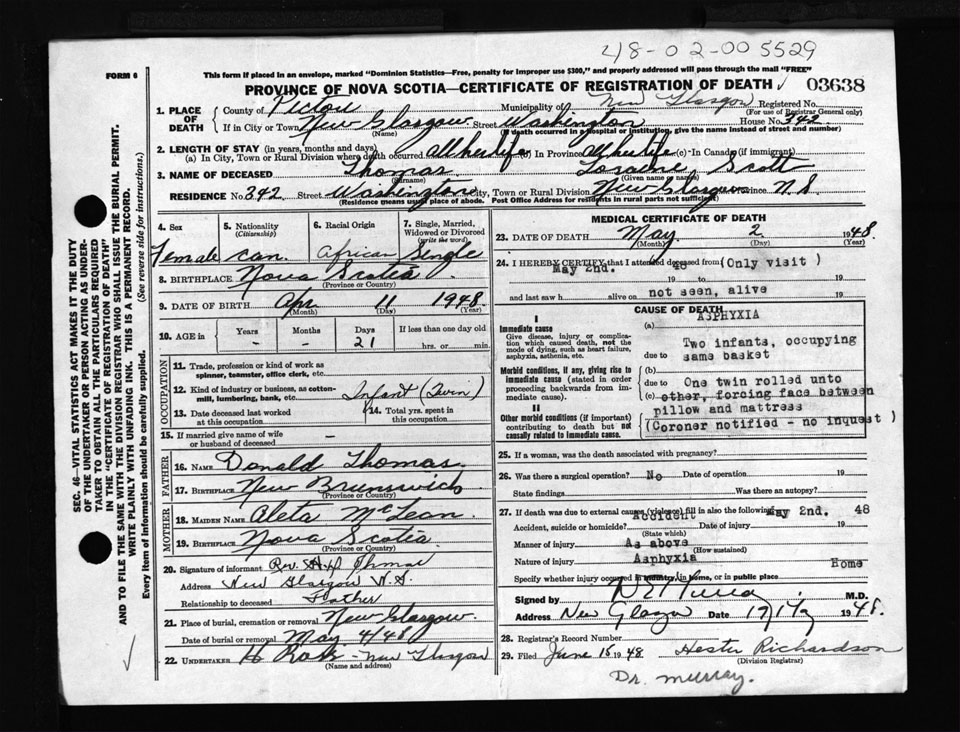 48-02-005529
FORM 6
This form if placed in an envelope, marked "Dominion Statistics—Free, penalty for improper use $300," and properly addressed will pass through the mail "FREE"
PROVINCE OF NOVA SCOTIA—CERTIFICATE OF REGISTRATION OF DEATH
03638
1. PLACE OF DEATH
County of Pictou Municipality of New Glasgow Registered No.
(For use of Registrar General only)
If in City or Town New Glasgow Street Washington House No. 342
(Name) (If death occurred in a hospital or institution, give the name instead of street and number)
2. LENGTH OF STAY (in years, months and days)
(a) In City, Town or Rural Division where death occurred All her life (b) In Province All her life (c) In Canada (if immigrant)
3. NAME OF DECEASED Thomas Loraine Scott
(Surname) (Given name or names)
RESIDENCE No. 342 Street Washington City, Town or Rural Division New Glasgow Province N.S
(Residence means usual place of abode. Post Office Address for residents in rural parts not sufficient)
4. Sex
Female
5. Nationality
(Citizenship)
Can.
6. Racial Origin
African
7. Single, Married, Widowed or Divorced
(write the word)
Single
8. BIRTHPLACE Nova Scotia
(Province or Country)
9. DATE OF BIRTH Apr 11 1948
(Month) (Day) (Year)
10. AGE in
Years Months Days If less than one day old
- - 21 hrs. or min.
OCCUPATION
11. Trade, profession or kind of work as spinner, teamster, office clerk, etc.
12. Kind of industry or business, as cotton-mill, lumbering, bank, etc. Infant (Twin)
13. Date deceased last worked at this occupation
14. Total yrs. spent in this occupation
15. If married give name of wife or husband of deceased —
FATHER
16. NAME Donald Thomas
17. BIRTHPLACE New Brunswick
(Province or Country)
MOTHER
18. MAIDEN NAME Aleta McLean
19. BIRTHPLACE Nova Scotia
(Province or Country)
20. Signature of informant Rev.
Address New Glasgow N.S.
Relationship to deceased Father
21. Place of burial, cremation or removal New Glasgow
Date of burial or removal May 4/48
22. UNDERTAKER H Ross - New Glasgow
(Name and address)
MEDICAL CERTIFICATE OF DEATH
23. DATE OF DEATH May 2 1948
(Month) (Day) (Year)
24. I HEREBY CERTIFY that I attended deceased from (Only visit )
May 2nd. 48
19 to 19
and last saw h alive on not seen, alive 19
CAUSE OF DEATH
I
Immediate cause
Give disease, injury or complication which caused death, not the mode of dying, such as heart failure, asphyxia, asthenia, etc.
(a) ASPHYXIA
due to Two infants, occupying same basket
Morbid conditions, if any, giving rise to immediate cause (stated in order proceeding backwards from immediate cause).
(b)
due to One twin rolled unto
(c) other, forcing face between pillow and mattress
II
Other morbid conditions (if important) contributing to death but not causally related to immediate cause.
(Coroner notified - no inquest )
25. If a woman, was the death associated with pregnancy?
26. Was there a surgical operation? No Date of operation 19
State findings Was there an autopsy?
27. If death was due to external causes (violence) fill in also the following:
Accident, suicide or homicide? Accident Date of injury May 2nd. 19 48
(State which)
Manner of injury As above
(How sustained)
Nature of injury Asphyxia
Specify whether injury occurred in industry, in home, or in public place Home
Signed by Murray M.D.
Address New Glasgow Date 1948.
28. Registrar's Record Number
29. Filed June 15 1948 Hester Richardson
(Division Registrar)
Dr. Murray.
SEC. 46—VITAL STATISTICS ACT MAKES IT THE DUTY
OF THE UNDERTAKER OR PERSON ACTING AS UNDER-
TAKER TO OBTAIN ALL THE PARTICULARS REQUIRED
IN THE "CERTIFICATE OF REGISTRATION OF DEATH"
AND TO FILE THE SAME WITH THE DIVISION REGISTRAR WHO SHALL ISSUE THE BURIAL PERMIT.
WRITE PLAINLY WITH UNFADING INK. THIS IS A PERMANENT RECORD.
Every item of information should be carefully supplied. (See reverse side for instructions.)